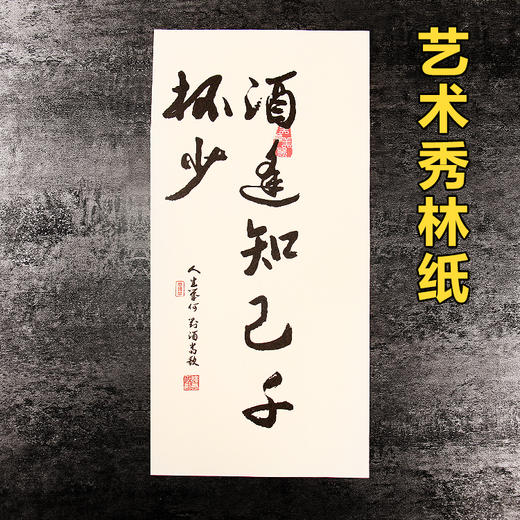 酒逢知己千
杯少
人生几何 对酒当歌
艺术秀林纸